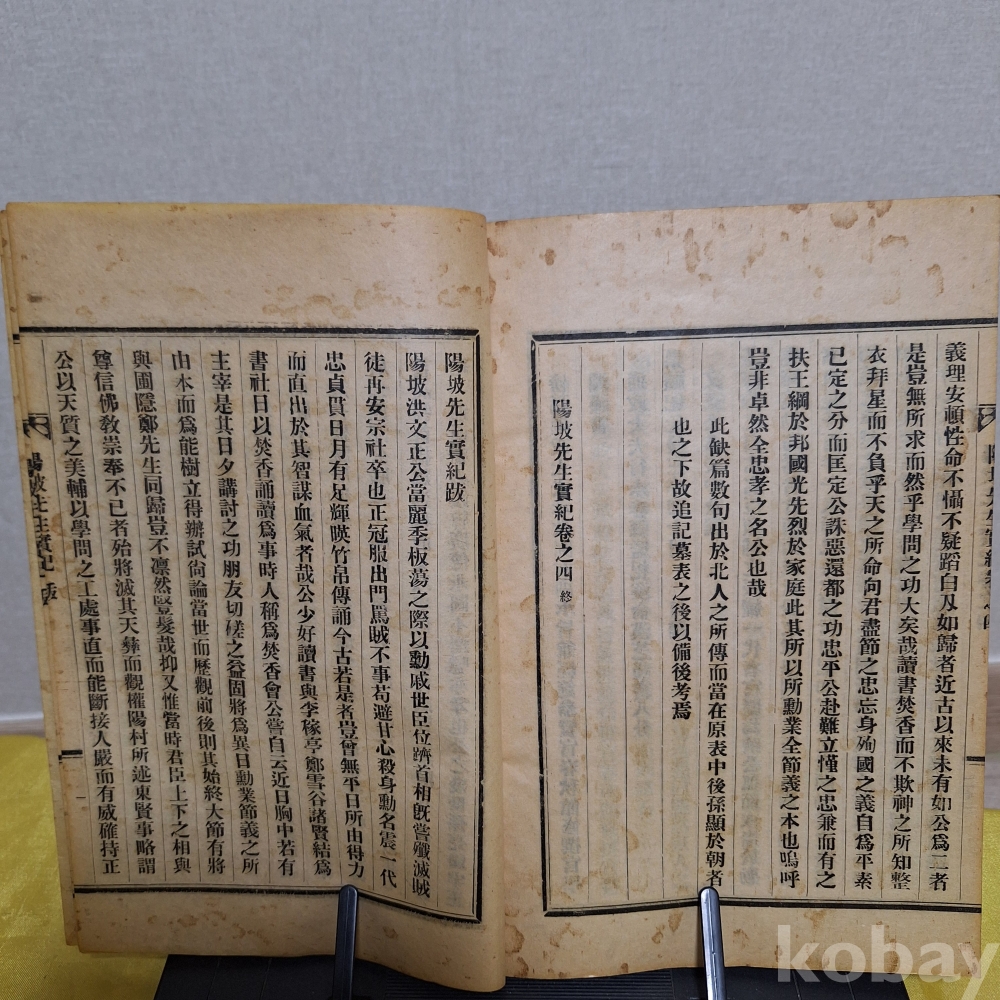 義理安頓性命不懾不疑蹈自及如歸者近古以來未有如公爲二者
是豈無所求而然乎學問之功大矣哉讀書焚香而不欺神之所知整
衣拜星而不負乎天之所命向君盡節之忠忘身殉國之義自爲平素
已定之分而匡定公誅惡還都之功忠平公赴難立慬之忠兼而有之
扶王綱於邦國光先烈於家庭此其所以所勳業全節義之本也嗚呼
豈非卓然全忠孝之名公也哉
此缺篇數句出於北人之所傳而當在原表中後孫顯於朝者
也之下故追記墓表之後以備後考焉
陽坡先生實紀卷之四 終
陽坡先生實紀跋
陽坡洪文正公當麗季板蕩之際以勳戚世臣位躋首相旣嘗殲滅賊
徒再安宗社卒也正冠服出門罵賊不事苟避甘心殺身勳名震一代
忠貞貫日月有足輝暎竹帛傳誦今古若是者豈曾無平日所由得力
而直出於其智謀血氣者哉公少好讀書與李稼亭鄭雪谷諸賢結爲
書社日以焚香誦讀爲事時人稱爲焚香會公嘗自云近日胸中若有
主宰是其日夕講討之功朋友切磋之益固將爲異日勳業節義之所
由本而爲能樹立得辦試尙論當世而歷觀前後則其始終大節有將
與圃隱鄭先生同歸豈不凛然豎髮哉抑又惟當時君臣上下之相與
尊信佛敎崇奉不已者殆將滅其天彝而觀權陽村所述東賢事略謂
公以天質之美輔以學問之工處事直而能斷接人嚴而有威確持正
陽坡先生實紀 跋
一
kobay